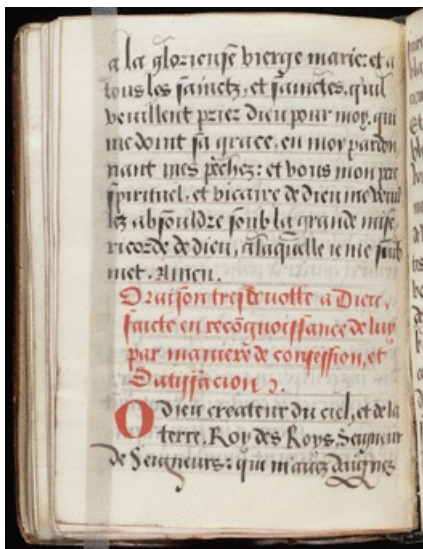 a la glorieuse vierge marie: et a
tous les sainctz, et sainctes, quil
veuillent priez dieu pour moy, qui
me doint sa grace, en moy pardon
nant mes pechez: et vous mon pere
spirituel, et vicaire de dieu me veuil
lez absouldre soub la grande mise
ricorde de dieu, a laquelle ie me sub
met. Amen.
Oraison tresdevotte a Dieu,
faicte en recõgnoissance de luy
par maniere de confession, et
Satisfacion
O dieu createur du ciel, et de la
terre, Roy des Roys, Seigneur
de Seigneurs: qui m'avez